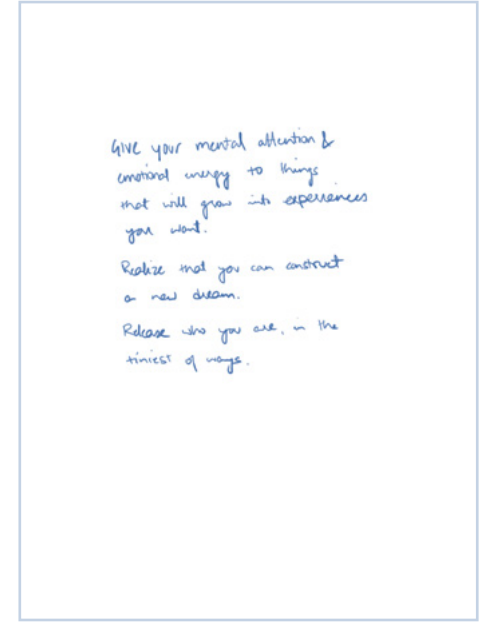 Give your mental attention &
emotional energy to things
that will grow into experiences
you want.
Realize that you can construct
a new dream.
Release who you are, in the
tiniest of ways.